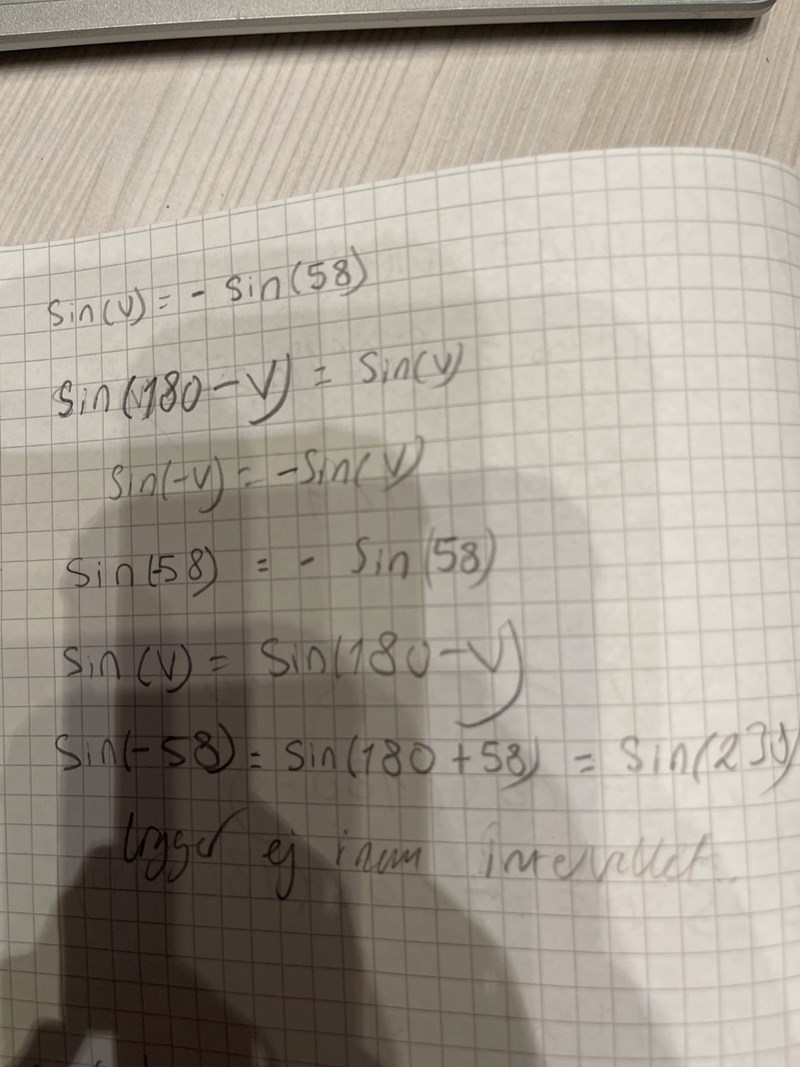 sin(v) = - sin(58)
sin(180-v) = sin(v)
sin(-v) = -sin(v)
sin(-58) = - sin(58)
sin(v) = sin(180-v)
sin(-58) = sin(180+58) = sin(23
ligger ej inom intervallet.